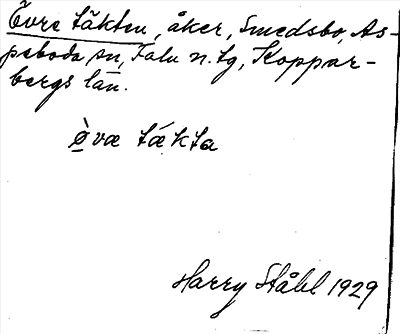 Övre täkten, åker, Smedsbo, As-
peboda sn, Falu n. tg, Koppar-
bergs län.
ö̀væ tǽkta
Harry Ståhl 1929